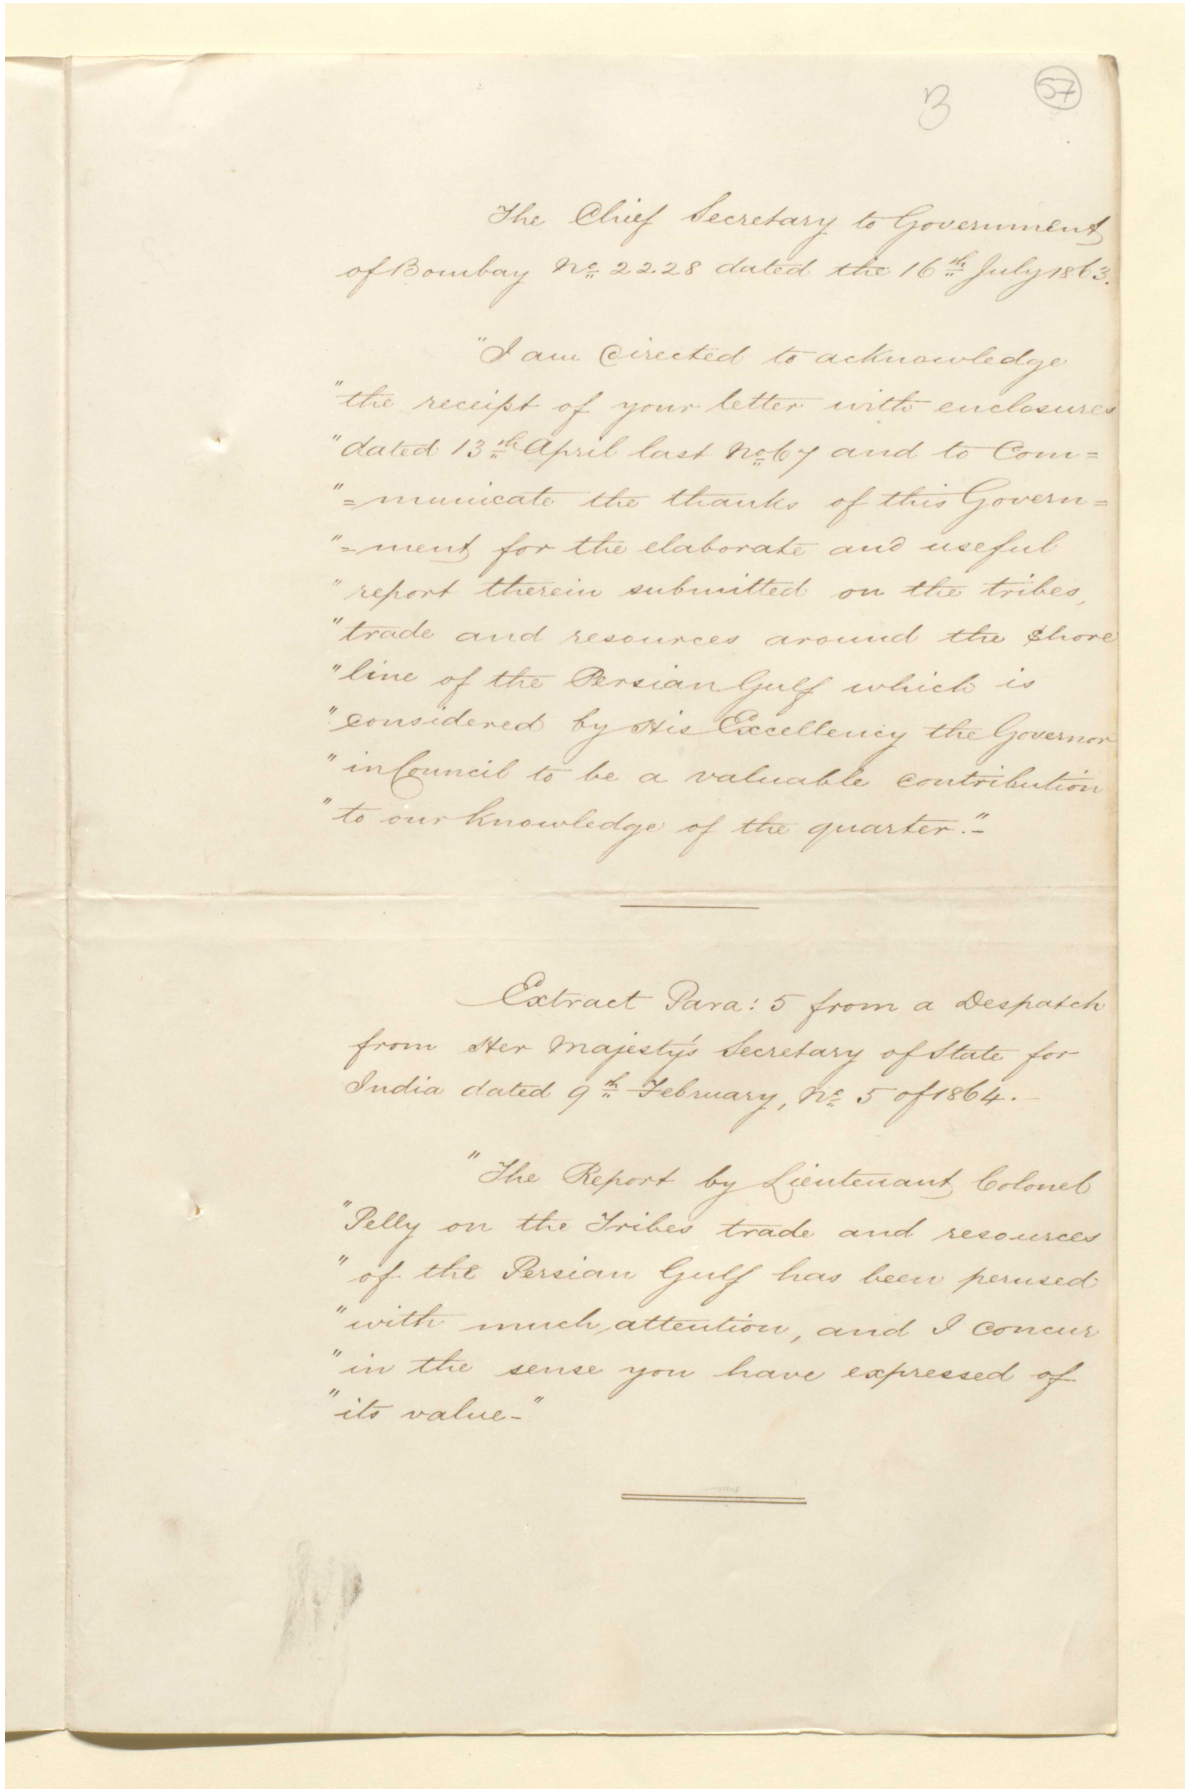 3
57
The Chief Secretary to Government
of Bombay No. 2228 dated the 16th July 1863.
"I am directed to acknowledge
"the receipt of your letter with enclosures
"dated 13th April last No. 67 and to Com=
"=municate the thanks of this Govern=
"=ment for the elaborate and useful
"report therein submitted on the tribes,
"trade and resources around the Shore
"line of the Persian Gulf which is
"considered by His Excellency the Governor
"in Council to be a valuable contribution
"to our knowledge of the quarter."-
Extract Para: 5 from a Despatch
from Her Majesty's Secretary of State for
India dated 9th February, No. 5 of 1864.-
"The Report by Lieutenant Colonel
"Pelly on the Tribes trade and resources
"of the Persian Gulf has been perused
"with much attention, and I concur
"in the sense you have expressed of
"its value-"